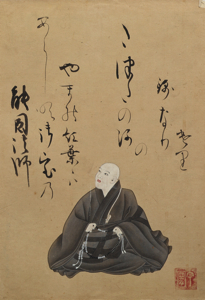 能因法師
あらし吹三室乃
やまの紅葉ハ
たつたの河
の
錦なり
けり